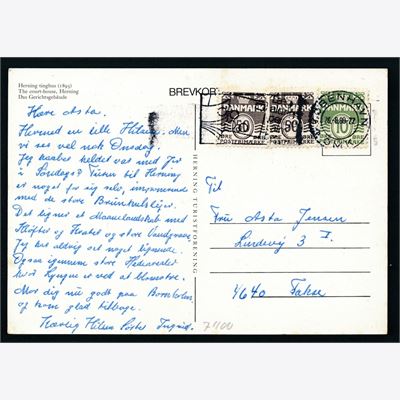 Herning tinghus (1893)
The court-house, Herning
Das Gerichtsgebäude
BREVKORT
DANMARK
DANMARK
DANMARK
50
10
ØRE
POSTFRIMÆRKE
KØBENHAVN
HERNING TURISTFORENING
Kære Asta.
Hermed en lille Hilsen. Men
vi ses vel nok Onsdag
Jeg heldet var med Jer
i Søndags? Turen til Herning
er noget for sig selv, imponerende
med de store Brunkulslejer.
Det ligner et Maanelandskab med
Kløfter og og store Vandgrave
Jeg har aldrig set noget lignende.
Ogsaa igennem store Hedearealer
hvor Lyngen er ved at blomstre.
Mor dig nu godt paa Bornholm
og kom glad tilbage.
Kærlig Hilsen Ingrid.
Til
Fru Asta Jensen
Lindevej 3 I
4640 Fakse
7400